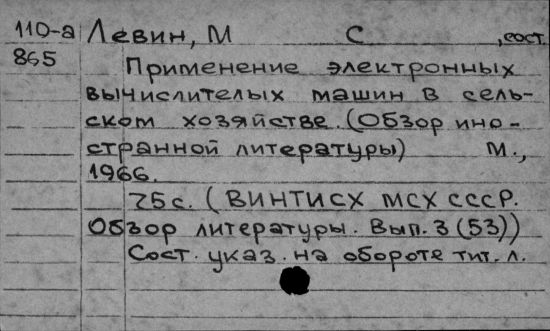 110-а Левин, М С , сост.
865 Применение электронных
вычислителых машин в сель-
ском хозяйстве. (Обзор ино-
странной литературы) М.,
1966.
75с. (ВИНТИСХ МСХ СССР.
Обзор литературы. Вып. 3 (53))
Сост. указ. на обороте тит. л.